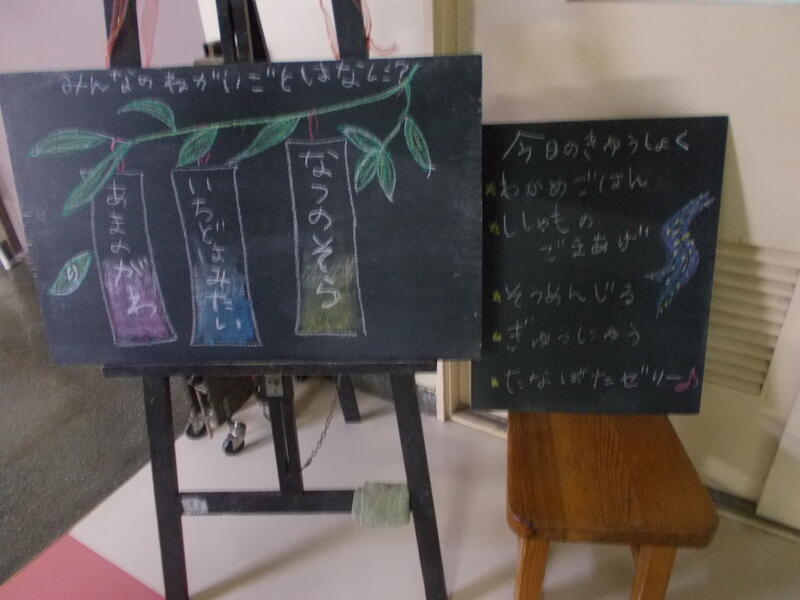 みんなのねがいごとはなに?
なつのそら
いちどはみたい
あまのがわ
今日のきゅうしょく
わかめごはん
ししゃもの
ごまあげ
そうめんじる
ぎゅうにゅう
たなばたゼリー